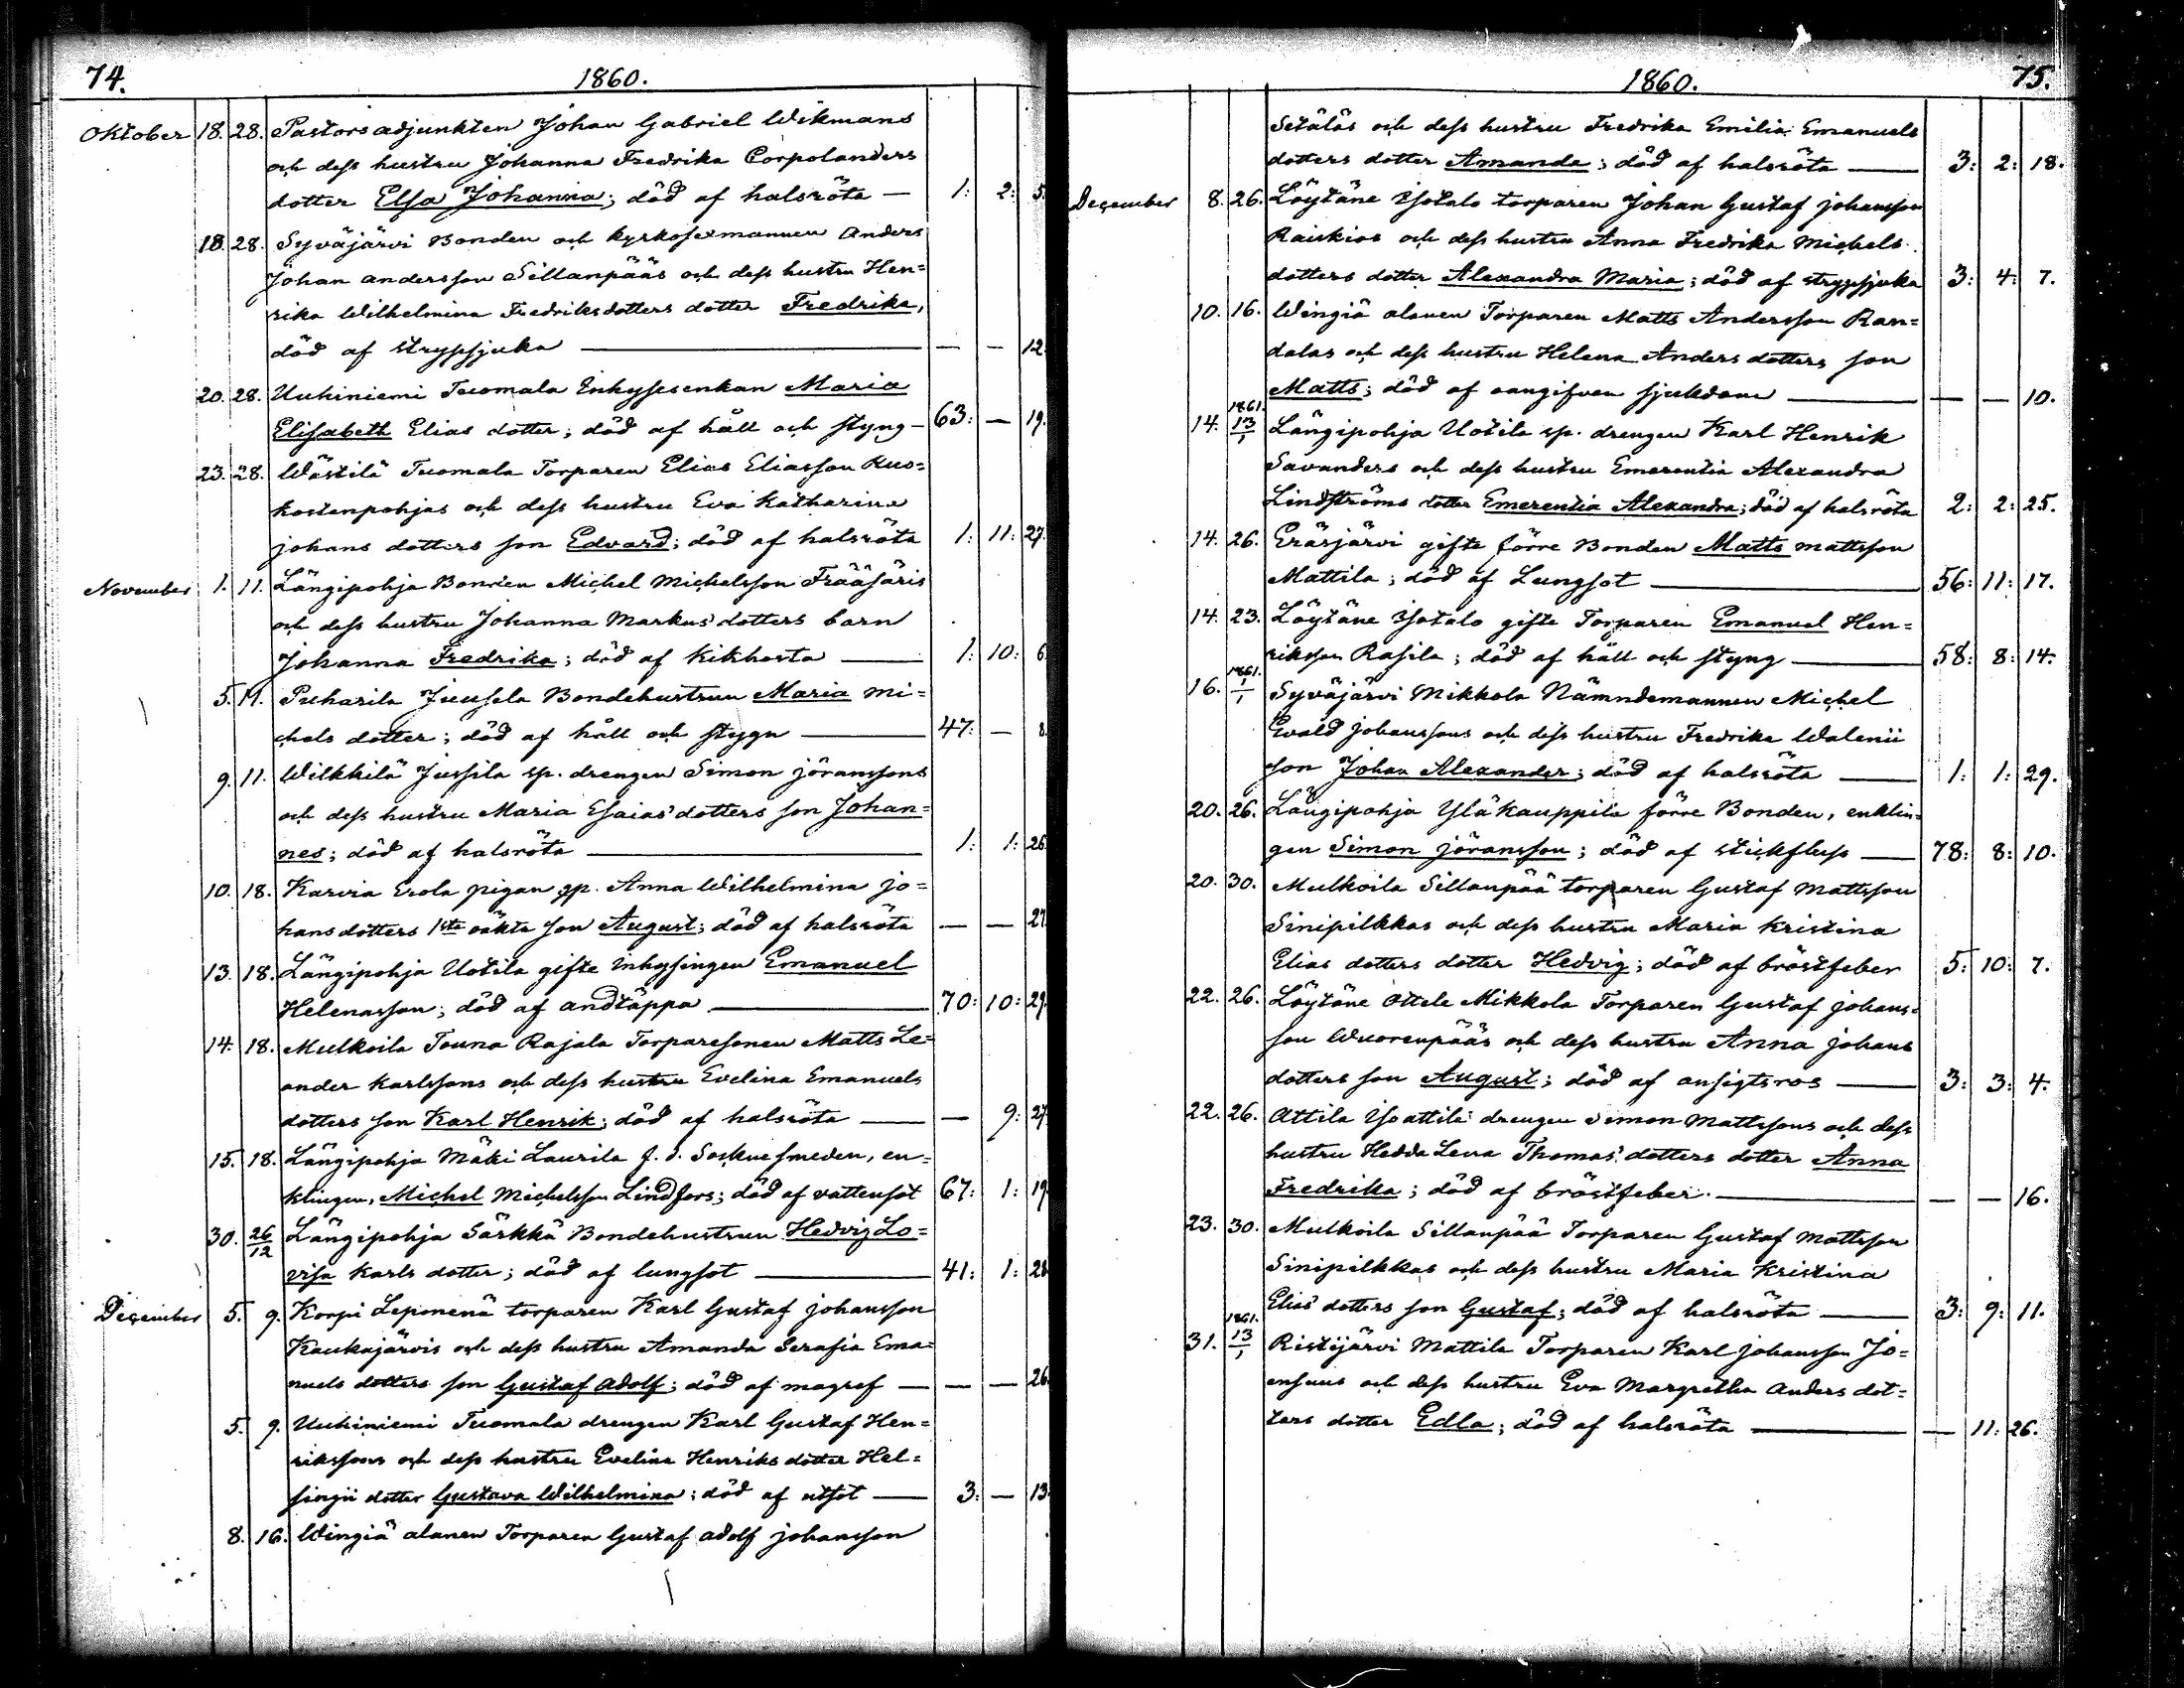 74. 1860.
Oktober 18. 28. Pastors adjunkten Johan Gabriel Wikmans
och dess hustru Johanna Fredrika Corpolanders
dotter Elsa Johanna; död af halsröta — 1: 2: 5.
18. 28. Syväjärvi Bonden och Kyrkosexmannen Anders
Johan Andersson Sillanpääs och dess hustru Hen=
rika Wilhelmina Fredriksdotters dotter Fredrika,
död af strypsjuka — — — 12.
20. 28. Uuhiniemi Tuomala Inhysesenkan Maria
Elisabeth Elias dotter; död af håll och styng — 63: — 19.
23. 28. Wästilä Tuomala Torparen Elias Eliasson Ruo=
kostenpohjas och dess hustru Eva Katharina
johans dotters son Edvard; död af halsröta 1: 11: 27.
November 1. 11. Längipohja Bonden Michel Michelsson Frääsäris
och dess hustru Johanna Markus dotters barn
Johanna Fredrika; död af Kikhosta — 1: 10: 6.
5. 11. Puharila Juusela Bondehustrun Maria Mi=
chels dotter; död af håll och stygn — 47: — 8.
9. 11. Wilkkilä Jussila sp. drengen Simon jöranssons
och dess hustru Maria Esaias dotters son Johan=
nes; död af halsröta — 1: 1: 26.
10. 18. Karvia Erola pigan gp. Anna Wilhelmina jo=
hans dotters 1sta oäkta son August; död af halsröta — — 27.
13. 18. Längipohja Uotila gifte Inhysingen Emanuel
Helenasson; död af andtäppa — 70: 10: 29.
14. 18. Mulkoila Touna Rajala Torparesonen Matts Le=
ander Karlssons och dess hustru Evelina Emanuels
dotters son Karl Henrik; död af halsröta — — 9: 27.
15. 18. Längipohja Mäki Laurila f. d. Socknesmeden, en=
klingen, Michel Michelsson Lindfors; död af vattensot 67: 1: 19.
30. 26/12 Längipohja Särkkä Bondehustrun Hedvig Lo=
visa Karls dotter; död af lungsot — 41: 1: 28.
December 5. 9. Korpi Leponenä torparen Karl Gustaf johansson
Kaukajärvis och dess hustru Amanda Serafia Ema=
nuels dotters son Gustaf Adolf; död af magref — — — 26.
5. 9. Uuhiniemi Tuomala drengen Karl Gustaf Hen=
rikssons och dess hustru Evelina Henriks dotter Hel=
singii dotter Gustava Wilhelmina; död af utsot — 3: — 13.
8. 16. Wingiä alanen Torparen Gustaf Adolf johansson
1860. 75.
Setäläs och dess hustru Fredrika Emilia Emanuels
dotters dotter Amanda; död af halsröta — 3: 2: 18.
December 8. 26. Löytäne Isotalo torparen Johan Gustaf johansson
Raiskios och dess hustru Anna Fredrika Michels
dotters dotter Alexandra Maria; död af strypsjuka 3: 4: 7.
10. 16. Wingiä alanen Torparen Matts Andersson Ran=
dalas och dess hustru Helena Anders dotters son
Matts; död af oangifven sjukdom — — — 10.
14. 1861. 13/1 Längipohja Uotila sp. drengen Karl Henrik
Savanders och dess hustru Emerentia Alexandra
Lindströms dotter Emerentia Alexandra; död af halsröta 2: 2: 25.
14. 26. Eräsjärvi gifte förre Bonden Matts Mattsson
Mattila; död af Lungsot — 56: 11: 17.
14. 23. Löytäne Isotalo gifte Torparen Emanuel Hen=
riksson Rasila; död af håll och styng — 58: 8: 14.
16. 1861. 1/1 Syväjärvi Mikkola Nämndemannen Michel
Evald johanssons och dess hustru Fredrika Walenii
son Johan Alexander; död af halsröta — 1: 1: 29.
20. 26. Längipohja Yläkauppila förre Bonden, enklin=
gen Simon jöransson; död af stickfluss — 78: 8: 10.
20. 30. Mulkoila Sillanpää torparen Gustaf Mattsson
Sinipilkkas och dess hustru Maria Kristina
Elias dotters dotter Hedvig; död af bröstfeber 5: 10: 7.
22. 26. Löytäne Ottele Mikkola Torparen Gustaf johans=
son Wuorenpääs och dess hustru Anna johans
dotters son August; död af ansigtsros — 3: 3: 4.
22. 26. Attila Isoattila drengen Simon Mattssons och dess
hustru Hedda Lena Thomas dotters dotter Anna
Fredrika; död af bröstfeber. — — — 16.
23. 30. Mulkoila Sillanpää Torparen Gustaf Mattsson
Sinipilkkas och dess hustru Maria Kristina
Elias dotters son Gustaf; död af halsröta — 3: 9: 11.
31. 1861. 13/1 Ristijärvi Mattila Torparen Karl johansson Jo=
ensuus och dess hustru Eva Margretha Anders dot=
ters dotter Edla; död af halsröta — — 11: 26.